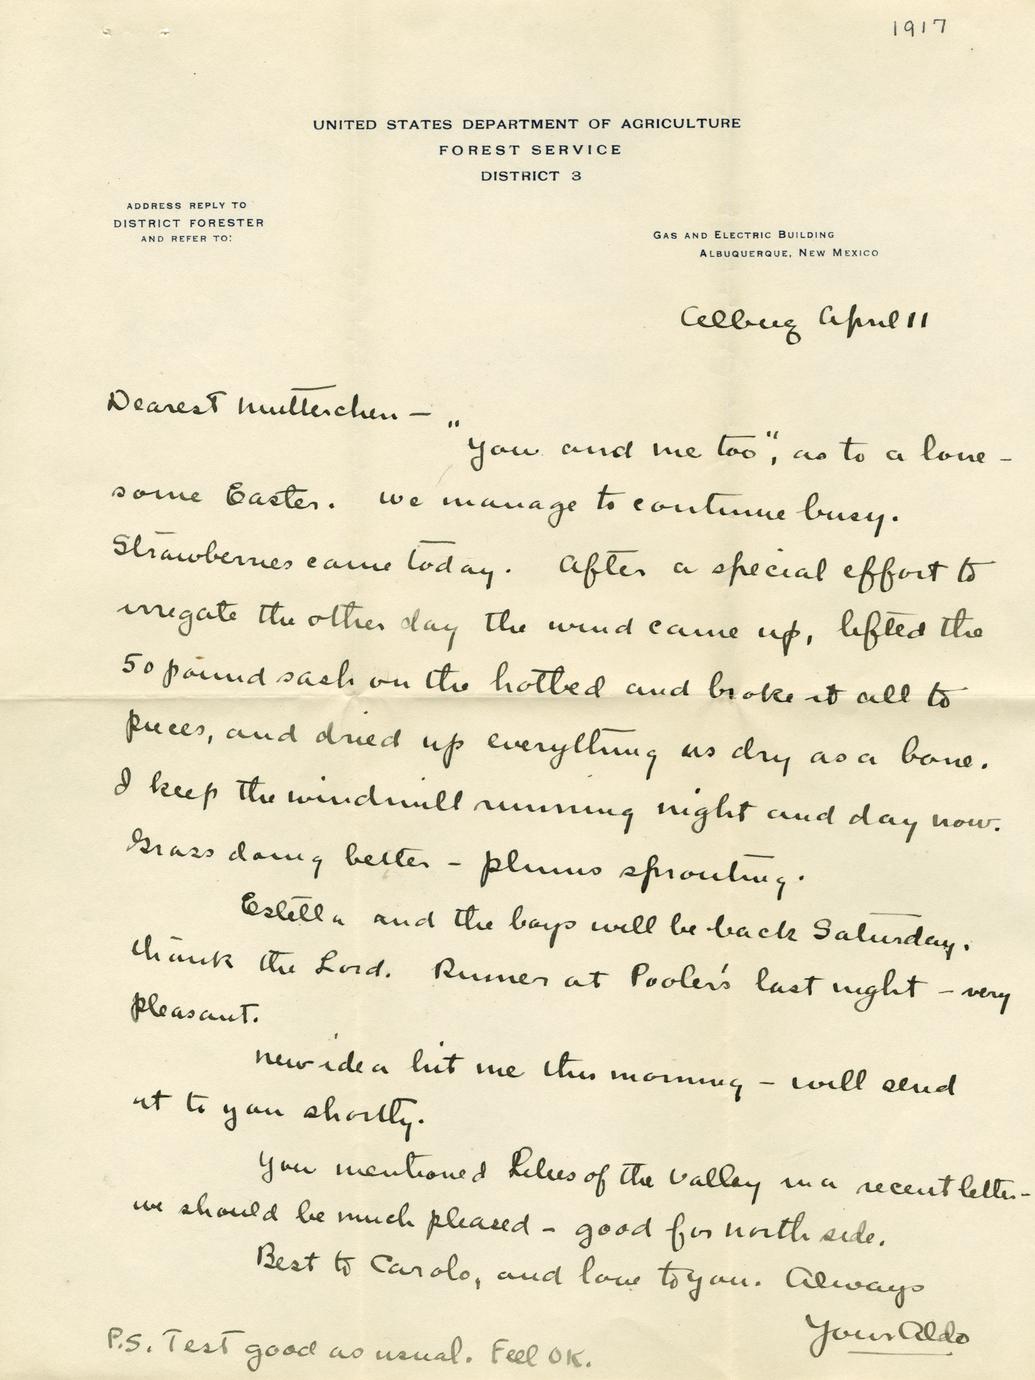 1917
UNITED STATES DEPARTMENT OF AGRICULTURE
FOREST SERVICE
DISTRICT 3
ADDRESS REPLY TO
DISTRICT FORESTER
AND REFER TO:
GAS AND ELECTRIC BUILDING
ALBUQUERQUE, NEW MEXICO
Albuq April 11
Dearest Mutterchen – „
You and me too", as to a lone-
some Easter. We manage to continue busy.
Strawberries came today. After a special effort to
irregate the other day the wind came up, lifted the
50 pound sash on the hotbed and broke it all to
pieces, and dried up everything as dry as a bone.
I keep the windmill running night and day now.
Grass doing better – plums sprouting.
Estella and the boys will be back Saturday,
thank the Lord. Dinner at Pooler's last night – very
pleasant.
New idea hit me this morning – will send
it to you shortly.
You mentioned Lilies of the Valley in a recent letter –
we should be much pleased – good for north side.
Best to Carolo, and love to you. Always
Your Aldo
P.S. Test good as usual. Feel OK.